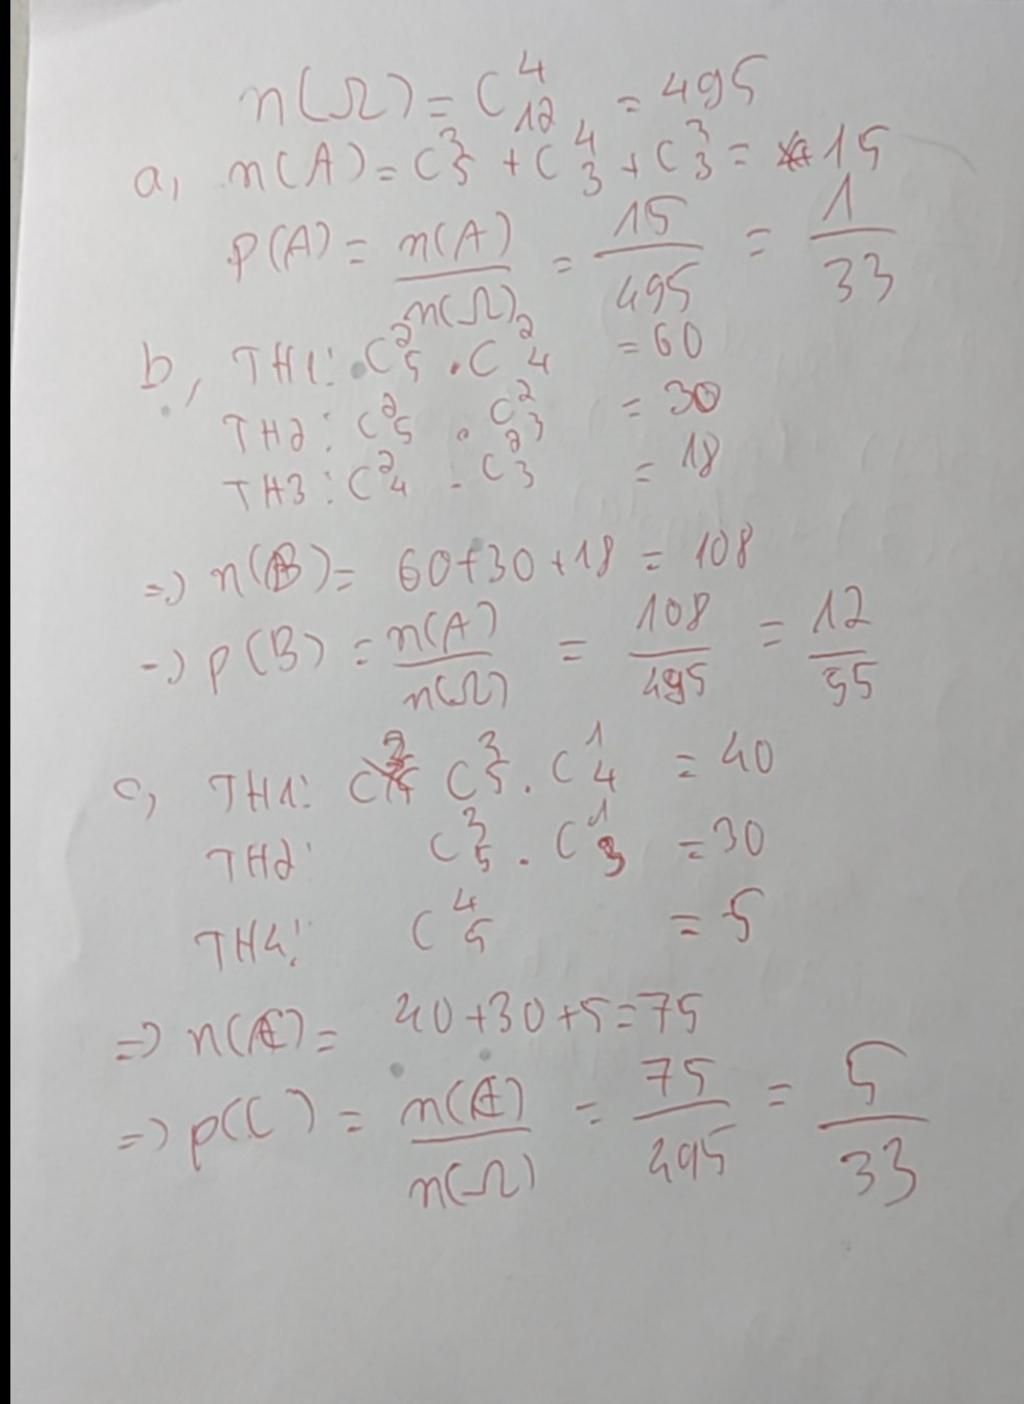 n(Ω) = C⁴₁₂ = 495
a, n(A) = C³₅ + C⁴₃ + C³₃ = 15
P(A) = n(A)/n(Ω) = 15/495 = 1/33
b, TH1: C²₅ . C²₄ = 60
TH2: C²₅ . C²₃ = 30
TH3: C²₄ . C²₃ = 18
=> n(B) = 60+30+18 = 108
-> p(B) = n(A)/n(Ω) = 108/495 = 12/55
c, TH1: C³₅ . C¹₄ = 40
TH2: C³₅ . C¹₃ = 30
TH4: C⁴₅ = 5
=> n(C) = 40+30+5=75
=> p(C) = n(C)/n(Ω) = 75/495 = 5/33